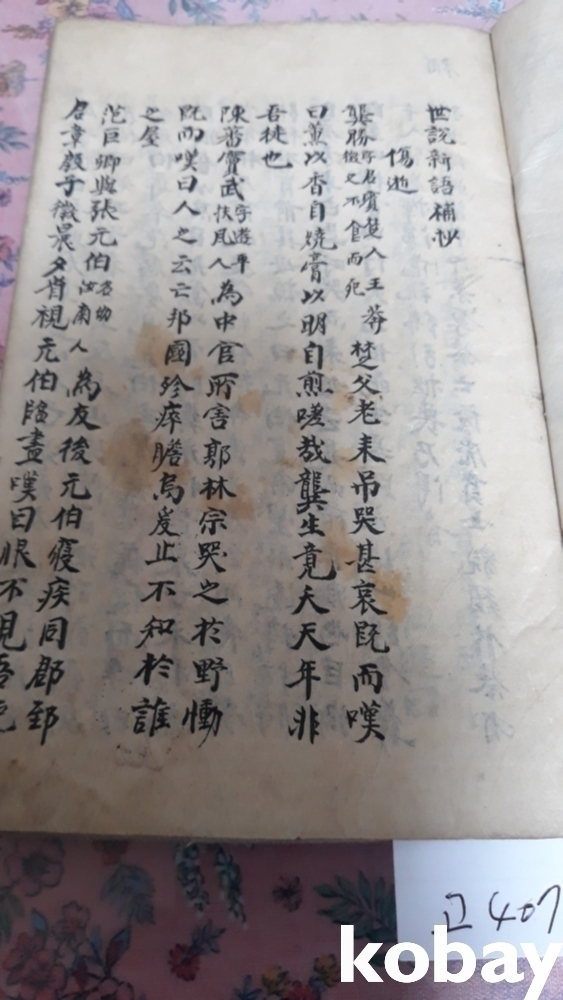 世說新語補抄
傷逝
龔勝字君賓楚人王莽徵之不食而死楚父老来吊哭甚哀旣而嘆
曰薰以香自燒膏以明自煎嗟哉龔生竟夭天年非
吾徒也
陳蕃竇武字遊平扶風人為中官所害郭林宗哭之於野慟
旣而嘆曰人之云亡邦國殄瘁瞻烏爰止不知於誰
之屋
范巨卿與張元伯名劭汝南人為友後元伯寢疾同郡郅
君章殷子徵晨夕省視元伯臨盡嘆曰恨不見吾死
고 407
kobay